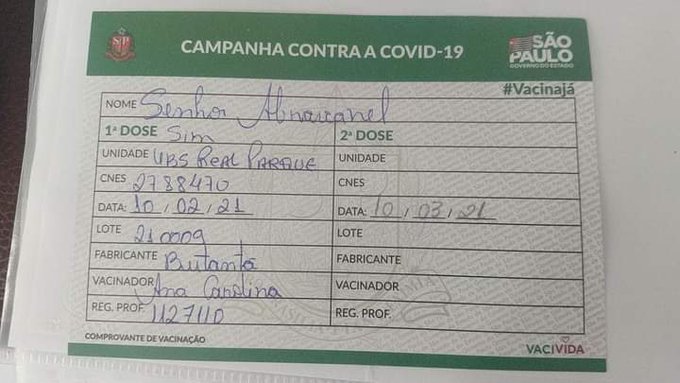 CAMPANHA CONTRA A COVID-19
SÃO PAULO
GOVERNO DO ESTADO
#Vacinajá
NOME Senhor Abravanel
1ª DOSE Sim 2ª DOSE
UNIDADE UBS REAL PARQUE UNIDADE
CNES 2788470 CNES
DATA: 10 / 02 / 21 DATA: 10 / 03 / 21
LOTE 210009 LOTE
FABRICANTE Butantã FABRICANTE
VACINADOR Ana Carolina VACINADOR
REG. PROF. 1127110 REG. PROF.
COMPROVANTE DE VACINAÇÃO VACIVIDA